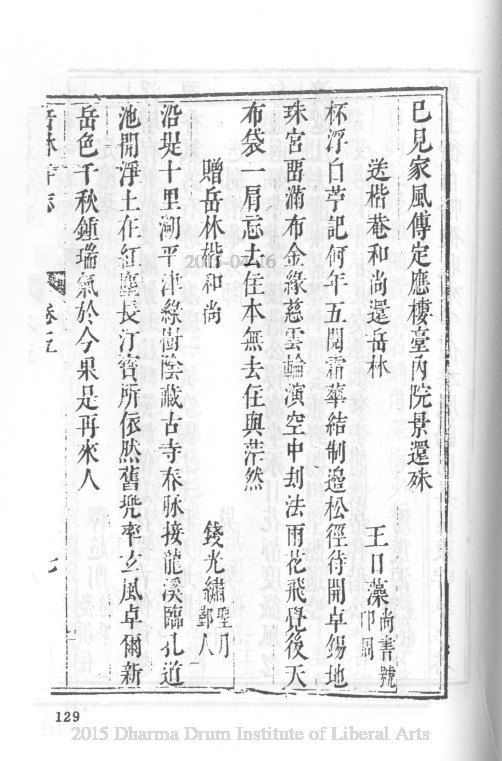 已見家風傳定應樓臺內院景還殊
送楷菴和尚還岳林
王日藻尚書號印周
杯浮白苧記何年五閱霜華結制邊松徑待開卓錫地
珠宮畱滿布金緣慈雲輪演空中刦法雨花飛覺後天
布袋一肩忘去住本無去住與茫然
贈岳林楷和尚
錢光繡聖月鄞人
沿堤十里湖平津綠樹陰藏古寺春脉接龍溪臨孔道
池開淨土在紅塵長汀寳所依然舊兠率玄風卓爾新
岳色千秋鍾瑞氣於今果是再來人
岳林寺志
卷五
七
2015-07-16
129
2015 Dharma Drum Institute of Liberal Arts